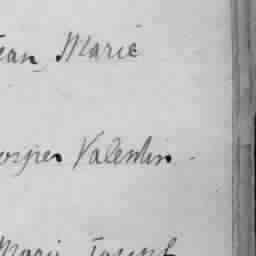 ean Marie
osper Valentin
Marie Joseph